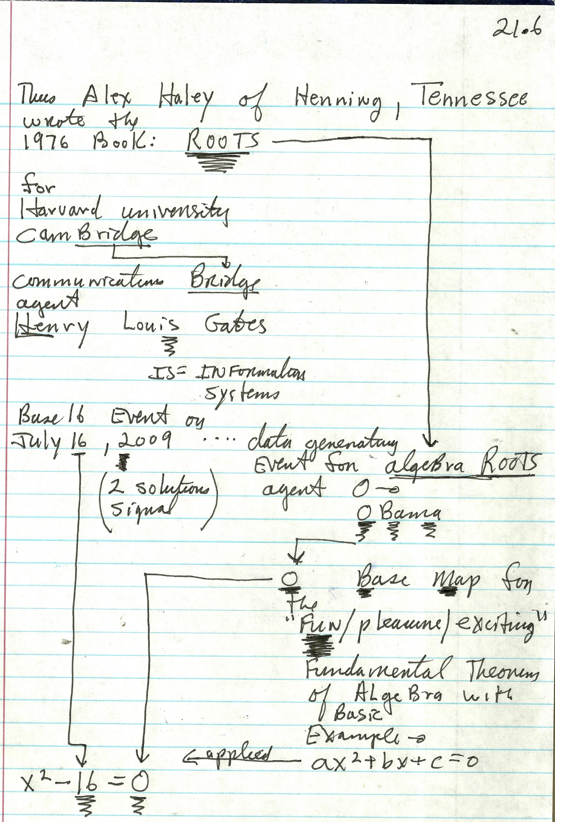 21.6
Thus Alex Haley of Henning, Tennessee
wrote the
1976 Book: ROOTS
for
Harvard university
CamBridge
Communications Bridge
agent
Henry Louis Gates
IS = INFormation
Systems
Base 16 Event on
July 16, 2009 .... data generating
Event for algeBra ROOTS
(2 solutions
signal)
agent O →
O Bama
O Base Map for
the
"FUN/pleasure/exciting"
Fundamental Theorem
of ALgeBra with
Basic
Example →
← applied ax²+bx+c=0
x² - 16 = 0